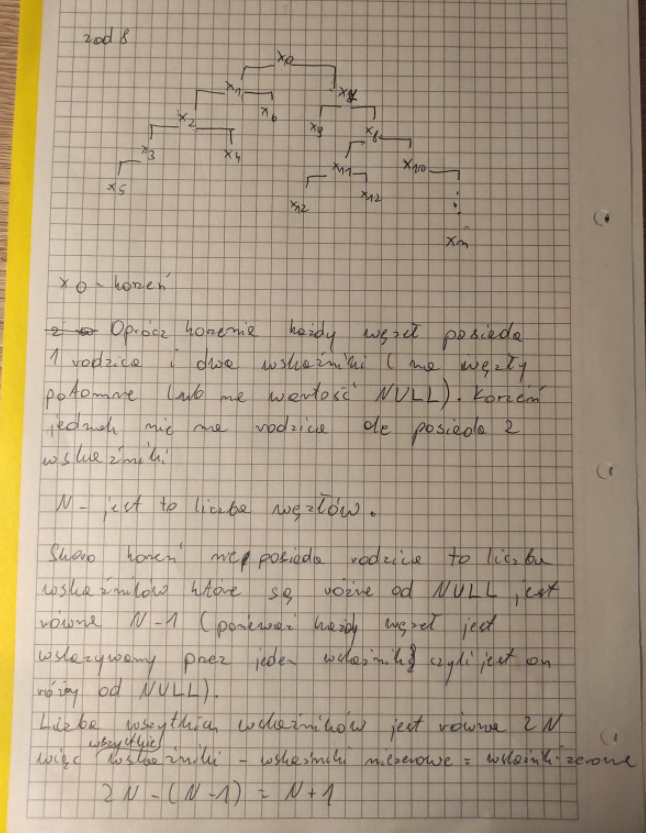 zad 8
x0
x1 x7
x2 x6 x9 x8
x3 x4 x11 x10
x5 x12 x12
xn
x0 - korzeń
Oprócz korzenia każdy węzeł posiada
1 rodzica i dwa wskaźniki (na węzły
potomne lub na wartość NULL). Korzeń
jednak nie ma rodzica ale posiada 2
wskaźniki
N - jest to liczba węzłów.
Skoro korzeń nie posiada rodzica to liczba
wskaźników które są różne od NULL jest
równa N-1 (ponieważ każdy węzeł jest
wskazywany przez jeden wskaźnik czyli jest on
różny od NULL).
Liczba wszytkich wskaźników jest równa 2N
więc wszystkie wskaźniki - wskaźniki niezerowe = wskaźniki zerowe
2N - (N-1) = N+1